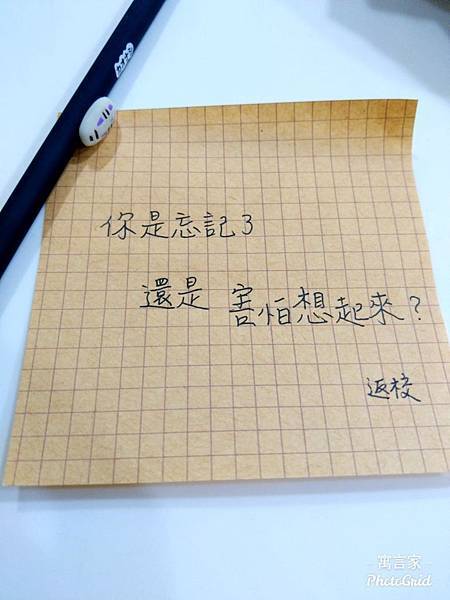 你是忘記了
還是害怕想起來?
返校
寓言家
PhotoGrid